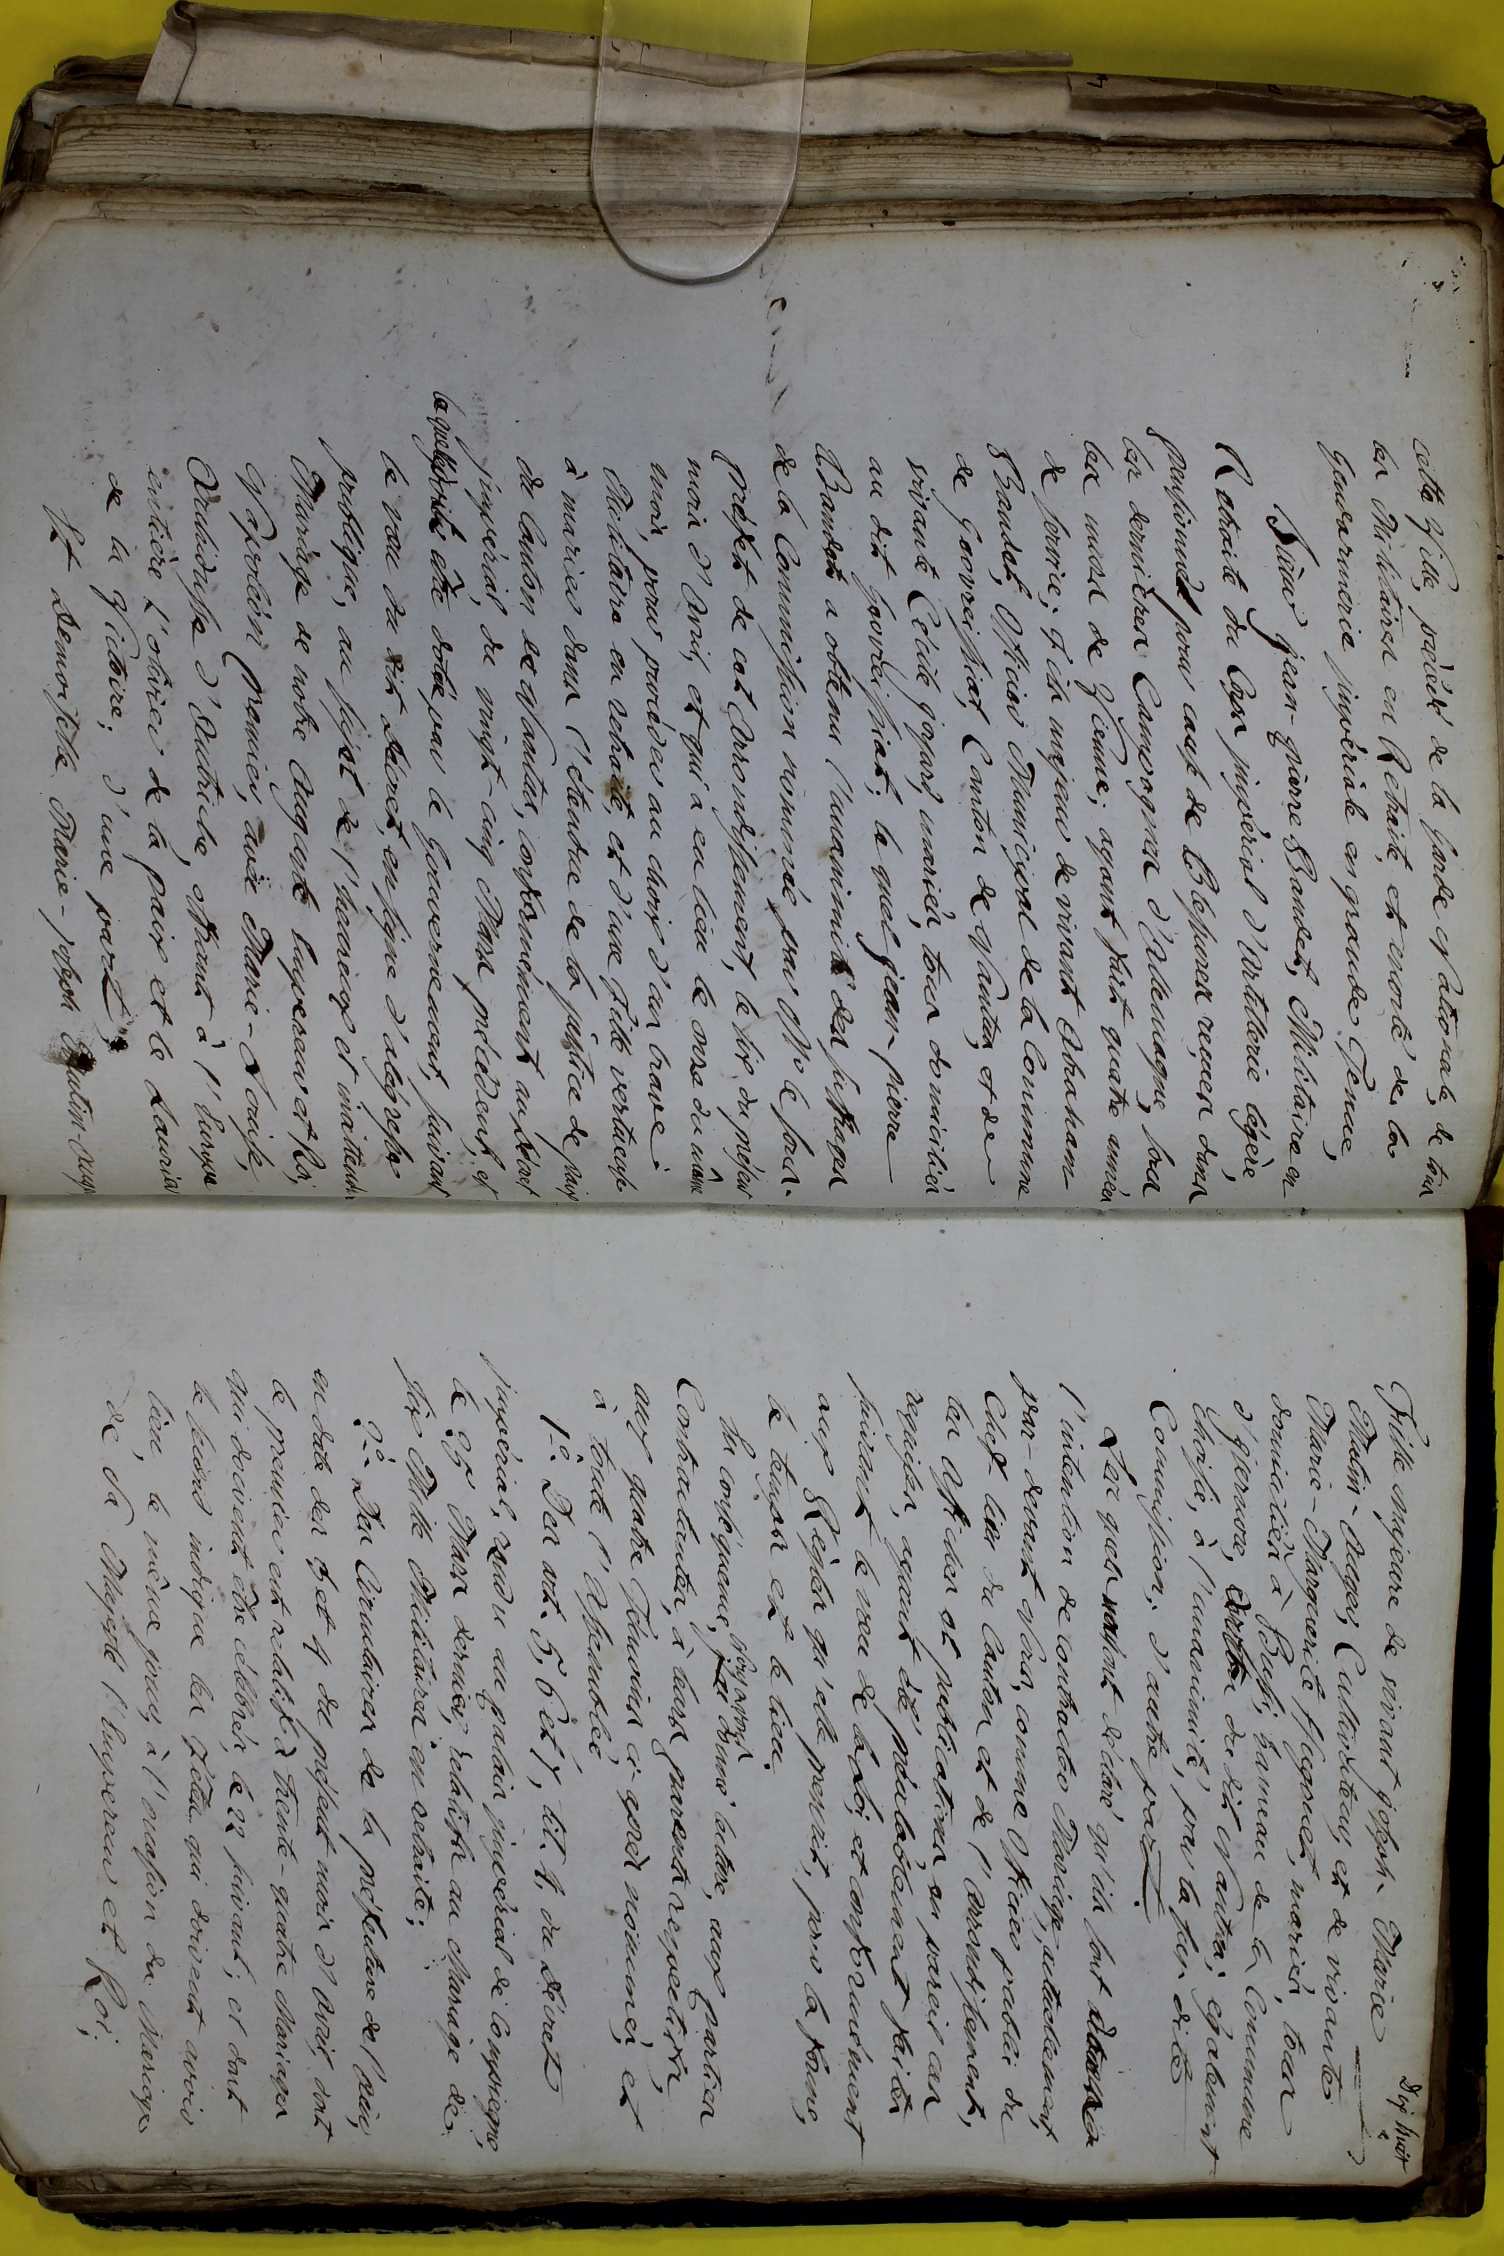 cette Ville, paréé de la Garde Nationale, de tous
les Militaires en Retraite, et escorté de la
Gendarmerie impériale en grande Tenue,
Sieur jean-pierre Baudet, Militaire en
Retraite du Corps impérial d'artillerie légère,
pensionné pour cause de Blessures reçues dans
les dernières Campagnes d'Allemagne, sous
les murs de Vienne; ayant fait quatre années
de service; fils majeur de vivant Abraham
Baudet, Officier Municipal de la Commune
de Gouvrissiat, Canton de Nantua, et de
vivante Cécile gojard, mariés, tous domiciliés
au dit Gouvrissiat; le quel jean-pierre
Baudet a obtenu l'unanimité des suffrages
de la Commission nommée par Mr. le sous-
préfet de cet Arrondissement, le six du présent
mois d'avril, et qui a eu lieu le onze du même
mois, pour procéder au choix d'un brave
Militaire en retraite, et d'une fille vertueuse
à marier dans l'étendue de la justice de paix
du Canton de Nantua, conformément au décret
impérial, du vingt cinq Mars précédent, et
laquelle doit être dotée par le Gouvernement, suivant
le vœu du dit décret, en signe d'alégresse
publique, au sujet de l'heureux et inattendu
Mariage de notre Auguste Empereur et Roi,
Napoléon premier, avec Marie-Louise,
Archiduchesse d'Autriche, offrant à l'Europe
entière l'olivier de la paix et le Laurier
de la Victoire; d'une part;
Et Demoiselle Marie-joseph Mutin-Auger
Dix huit
Fille majeure de vivant joseph-Marie
Mutin-Auger, Cultivateur, et de vivante
Marie-Marguerite Hugonnet, mariés, tous
domiciliés à Bussy, hameau de la Commune
d'Izernore, Canton du dit Nantua; également
Choisie, à l'unanimité, par la sus dite
Commission; d'autre part.
Les quels m'ont déclaré qu'ils sont dans
l'intention de contracter Mariage, actuellement,
par-devant Nous, comme Officier public du
Chef lieu du Canton et de l'arrondissement,
les Affiches et publications en pareil cas
requises, ayant été préalablement faites
suivant le vœu de la Loi, et conformément
aux Règles qu'elle prescrit, pour la forme,
le temps et le lieu.
En conséquence, Nous avons donné lecture, aux parties
Contractantes, à leurs parents respectifs,
aux quatre Témoins ci-après nommés, et
à toute l'Assemblée,
1.° Des art. 5, 6 et 7, tit. 4, du décret
impérial, rendu au palais impérial de Compiegne,
le 25 Mars dernier, relatifs au Mariage de
six Mille Militaires en retraite;
2.° Des Circulaires de la préfecture de l'Ain,
en date des 3 et 4 du présent mois d'avril, dont
la première est relative à trente-quatre Mariages
qui doivent être célébrés le 22 suivant; et dont
la seconde indique les fêtes qui doivent avoir
lieu, le même jour, à l'occasion du Mariage
de Sa Majesté l'Empereur et Roi;